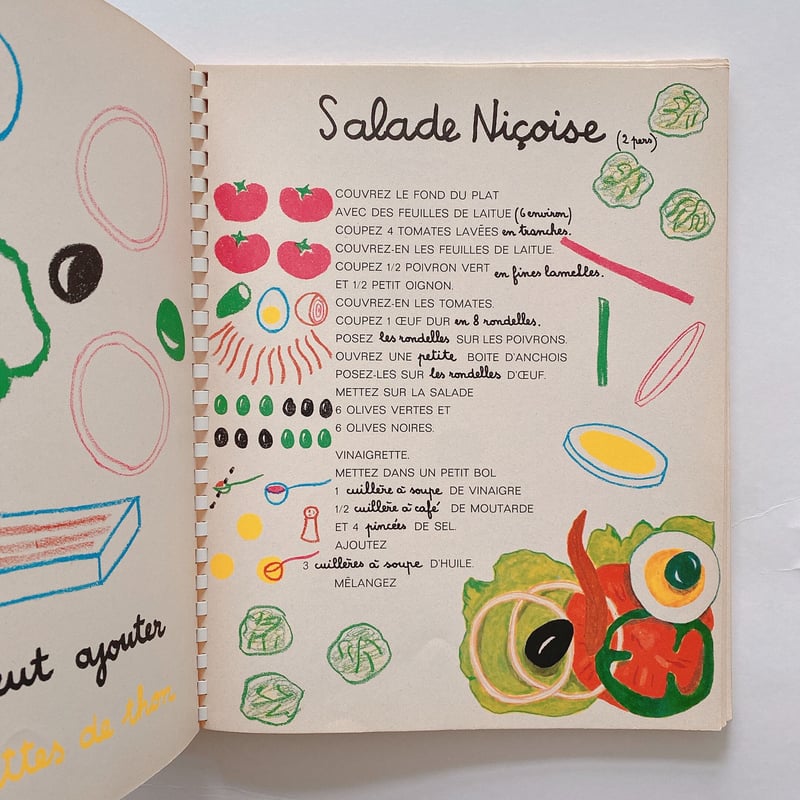 eut ajouter
ttes de thon
Salade Niçoise (2 pers)
COUVREZ LE FOND DU PLAT
AVEC DES FEUILLES DE LAITUE (6 environ)
COUPEZ 4 TOMATES LAVÉES en tranches.
COUVREZ-EN LES FEUILLES DE LAITUE.
COUPEZ 1/2 POIVRON VERT en fines lamelles.
ET 1/2 PETIT OIGNON.
COUVREZ-EN LES TOMATES.
COUPEZ 1 ŒUF DUR en 8 rondelles.
POSEZ les rondelles SUR LES POIVRONS.
OUVREZ UNE petite BOITE D'ANCHOIS
POSEZ-LES SUR les rondelles D'ŒUF.
METTEZ SUR LA SALADE
6 OLIVES VERTES ET
6 OLIVES NOIRES.
VINAIGRETTE.
METTEZ DANS UN PETIT BOL
1 cuillère à soupe DE VINAIGRE
1/2 cuillère à café DE MOUTARDE
ET 4 pincées DE SEL.
AJOUTEZ
3 cuillères à soupe D'HUILE.
MÊLANGEZ